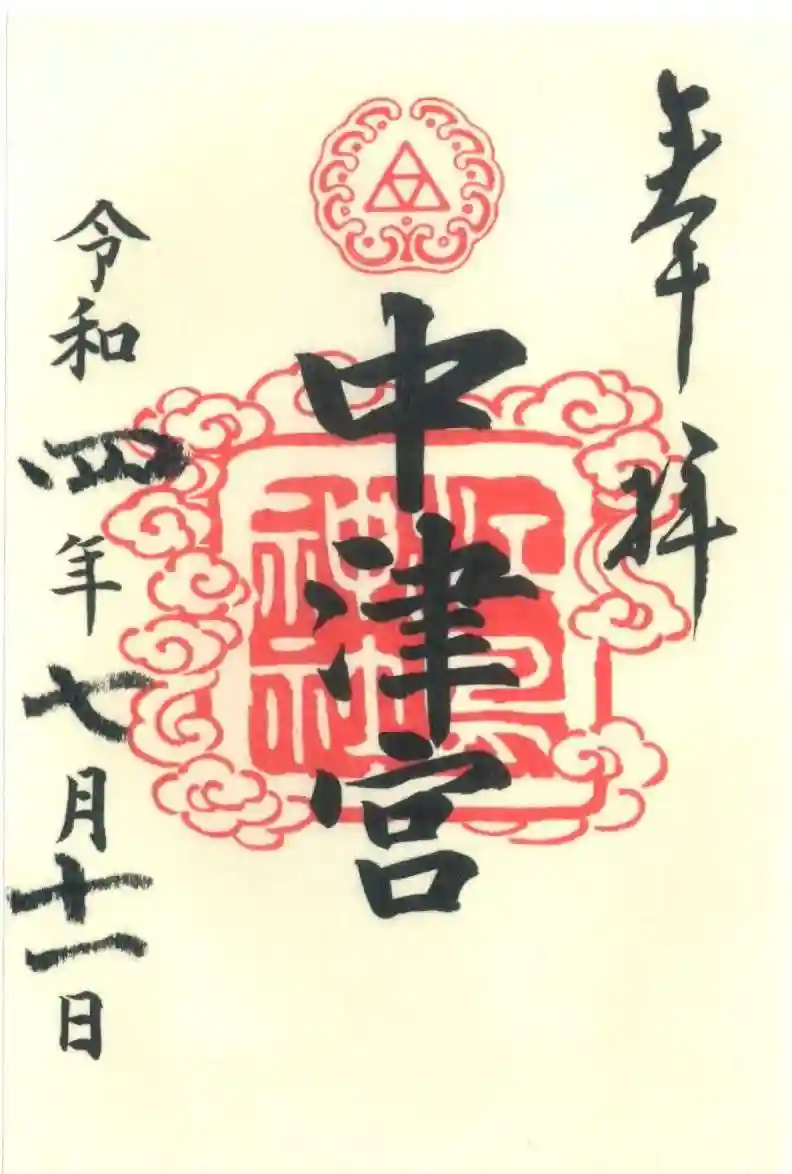 奉拝
中津宮
江島神社
令和四年七月十一日